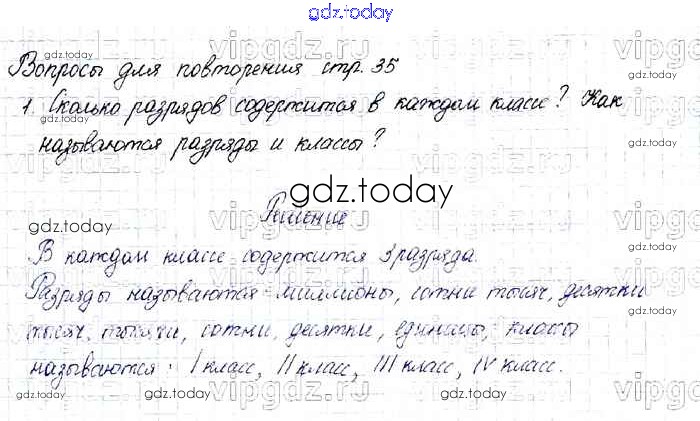 gdz.today
Вопросы для повторения стр. 35
1. Сколько разрядов содержится в каждом класе? Как
называются разряды и классы?
gdz.today
Решение
gdz.today
В каждом классе содержится 3 разряда.
Разряды называются миллионы, сотни тысяч, десятки
тысяч, тысячи, сотни, десятки, единицы, классы
называются: I класс, II класс, III класс, IV класс.
gdz.today
gdz.today
vipgdz.ru